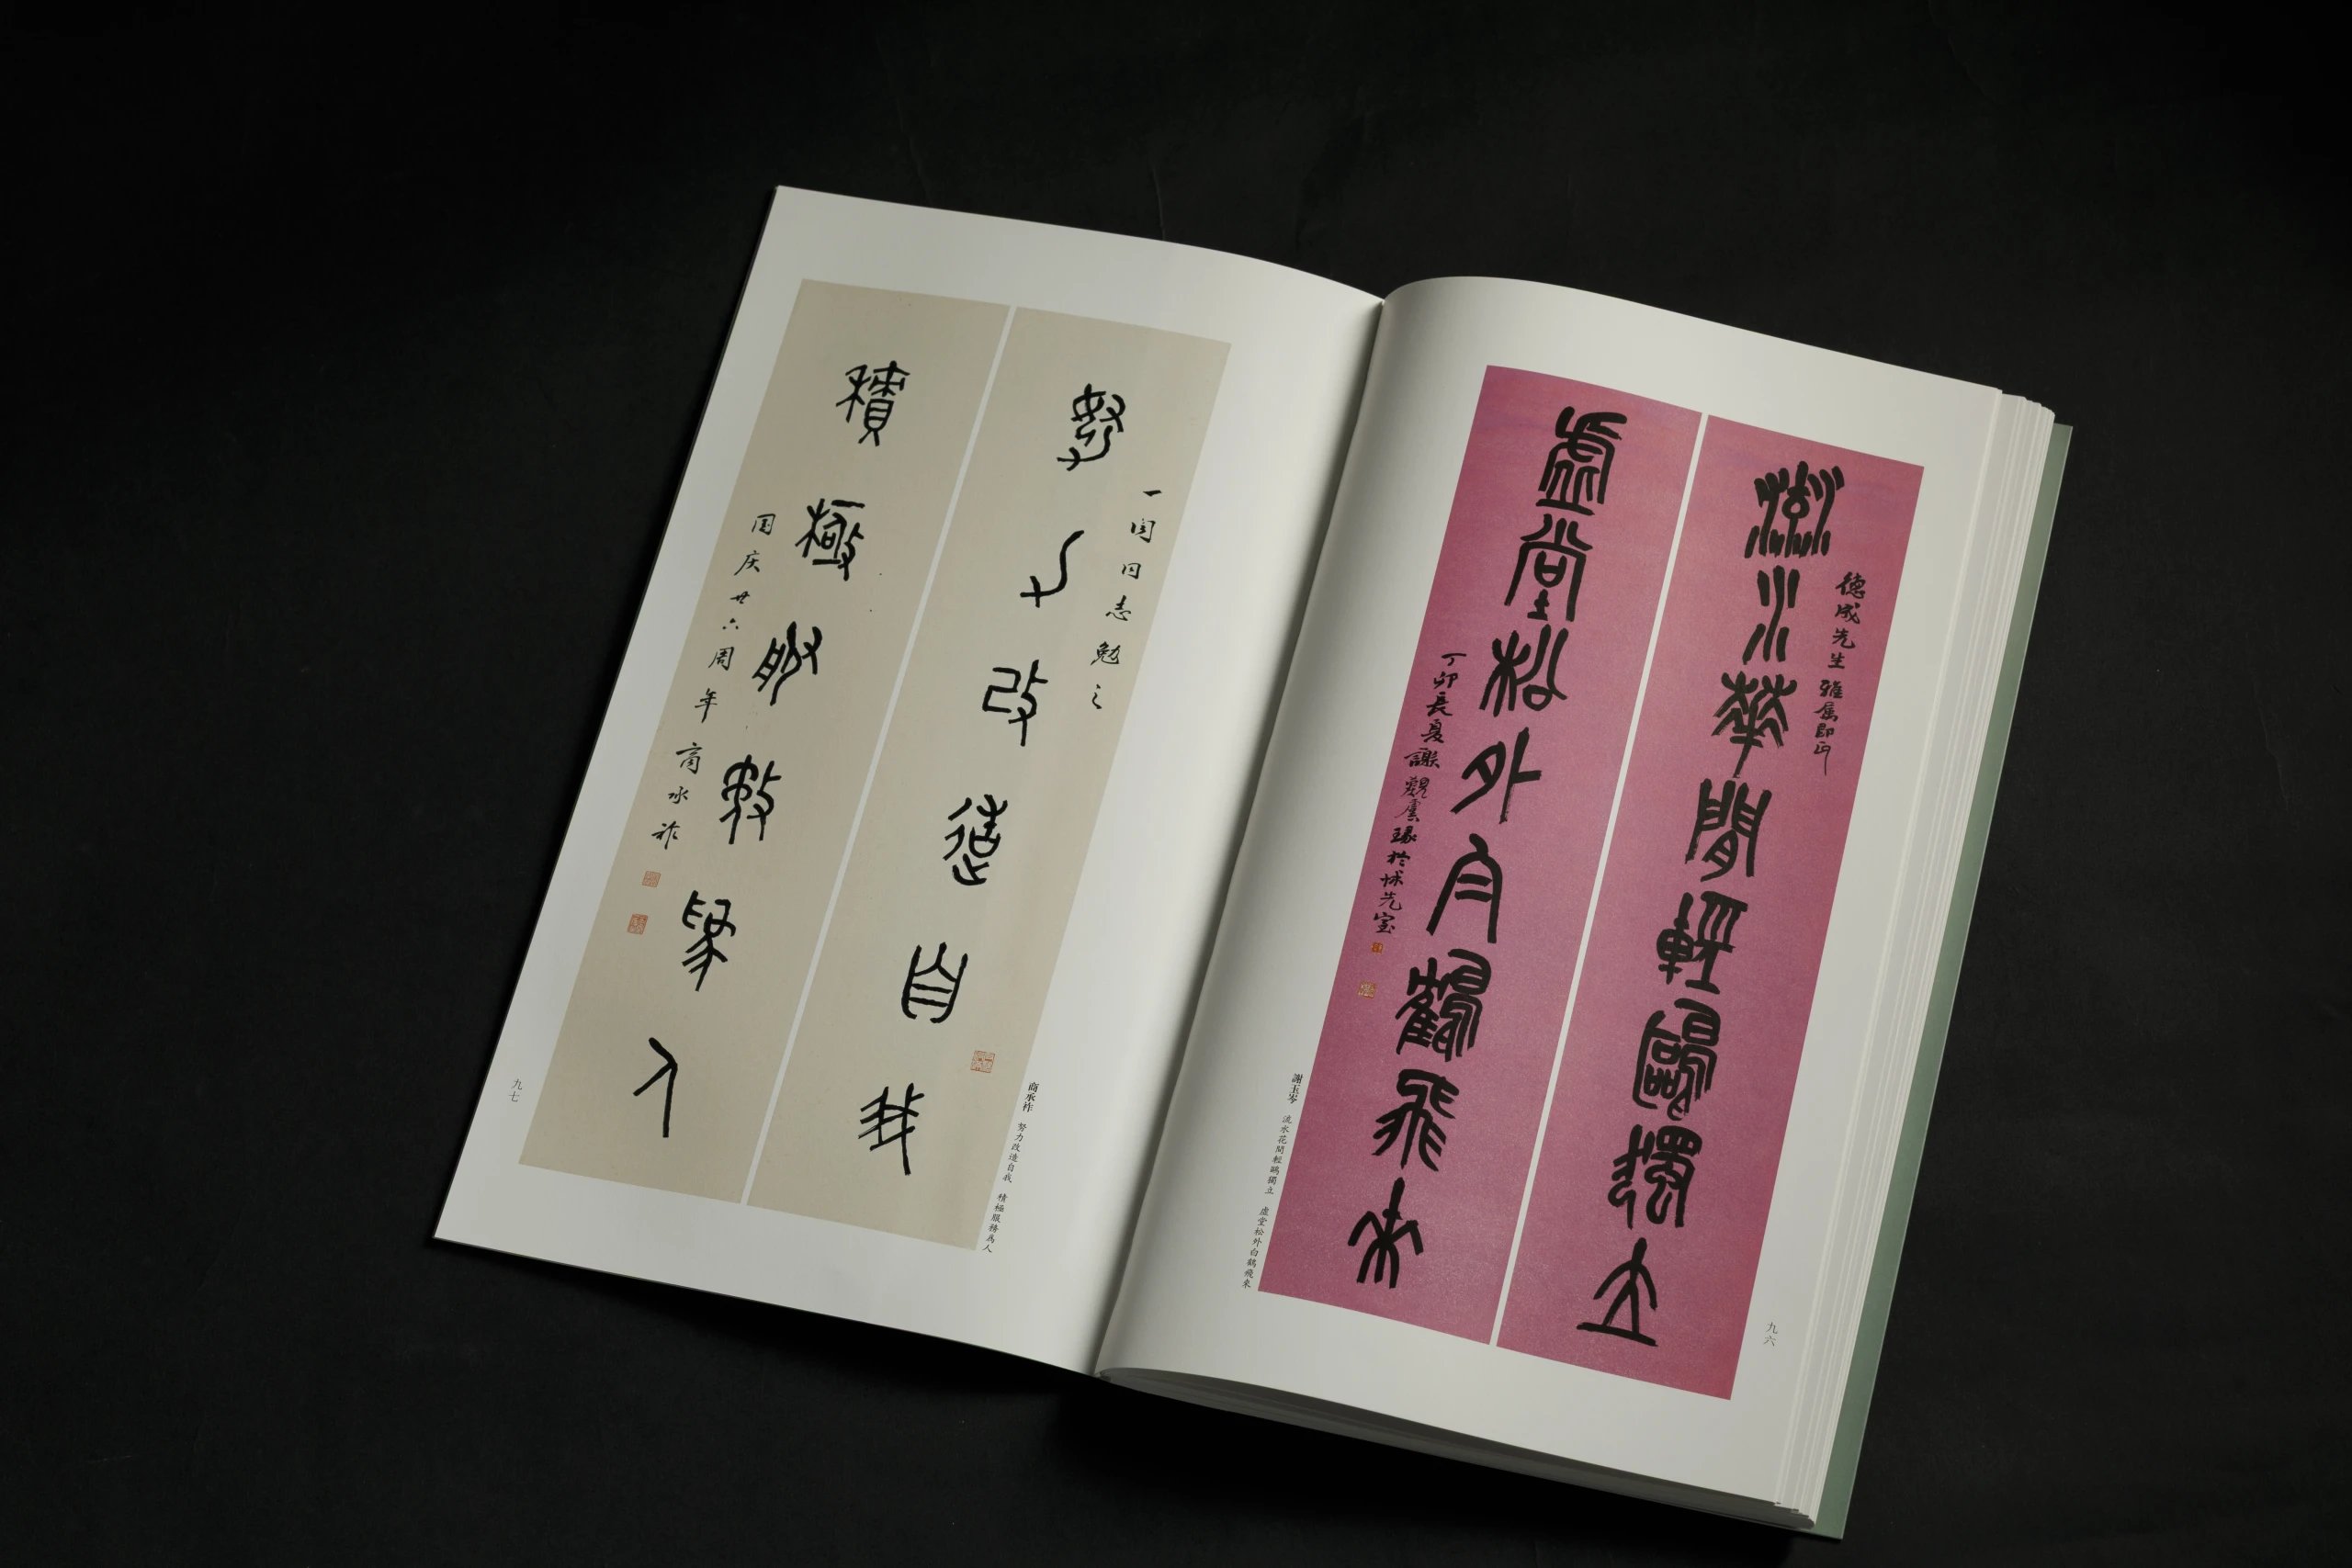 流水花間輕鷗獨立
德成先生雅屬即正
虛堂松外白鶴飛來
丁卯長夏謝覲虞
謝玉岑 流水花間輕鷗獨立 虛堂松外白鶴飛來
九六
努力改造自我
同志勉之
積極服務為人
国庆廿六周年 商承祚
商承祚 努力改造自我 積極服務為人
九七